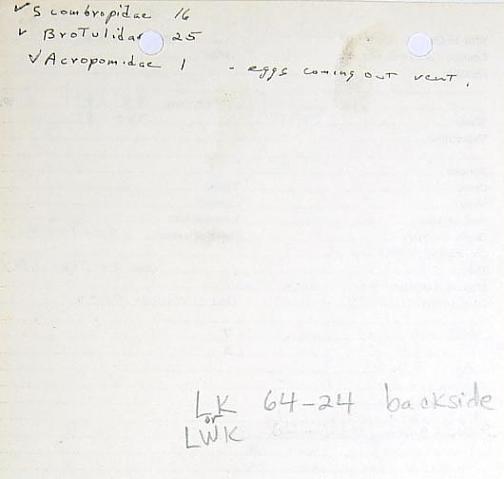 ✓ Scombropidae 16
✓ Brotulidae 25
✓ Acropomidae 1 - eggs coming out vent.
LK 64-24 backside
or
LWK